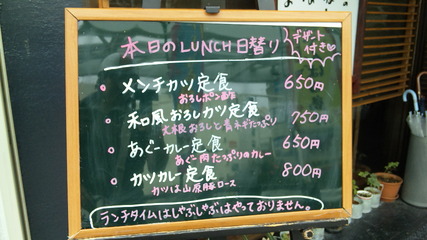 本日のLUNCH日替り
デザート
付き♡
• メンチカツ定食 650円
おろしポン酢
• 和風おろしカツ定食 750円
大根おろしと青ネギたっぷり
• あぐーカレー定食 650円
あぐー肉たっぷりのカレー
• カツカレー定食 800円
カツは山原豚ロース
ランチタイムはしゃぶしゃぶはやっておりません。